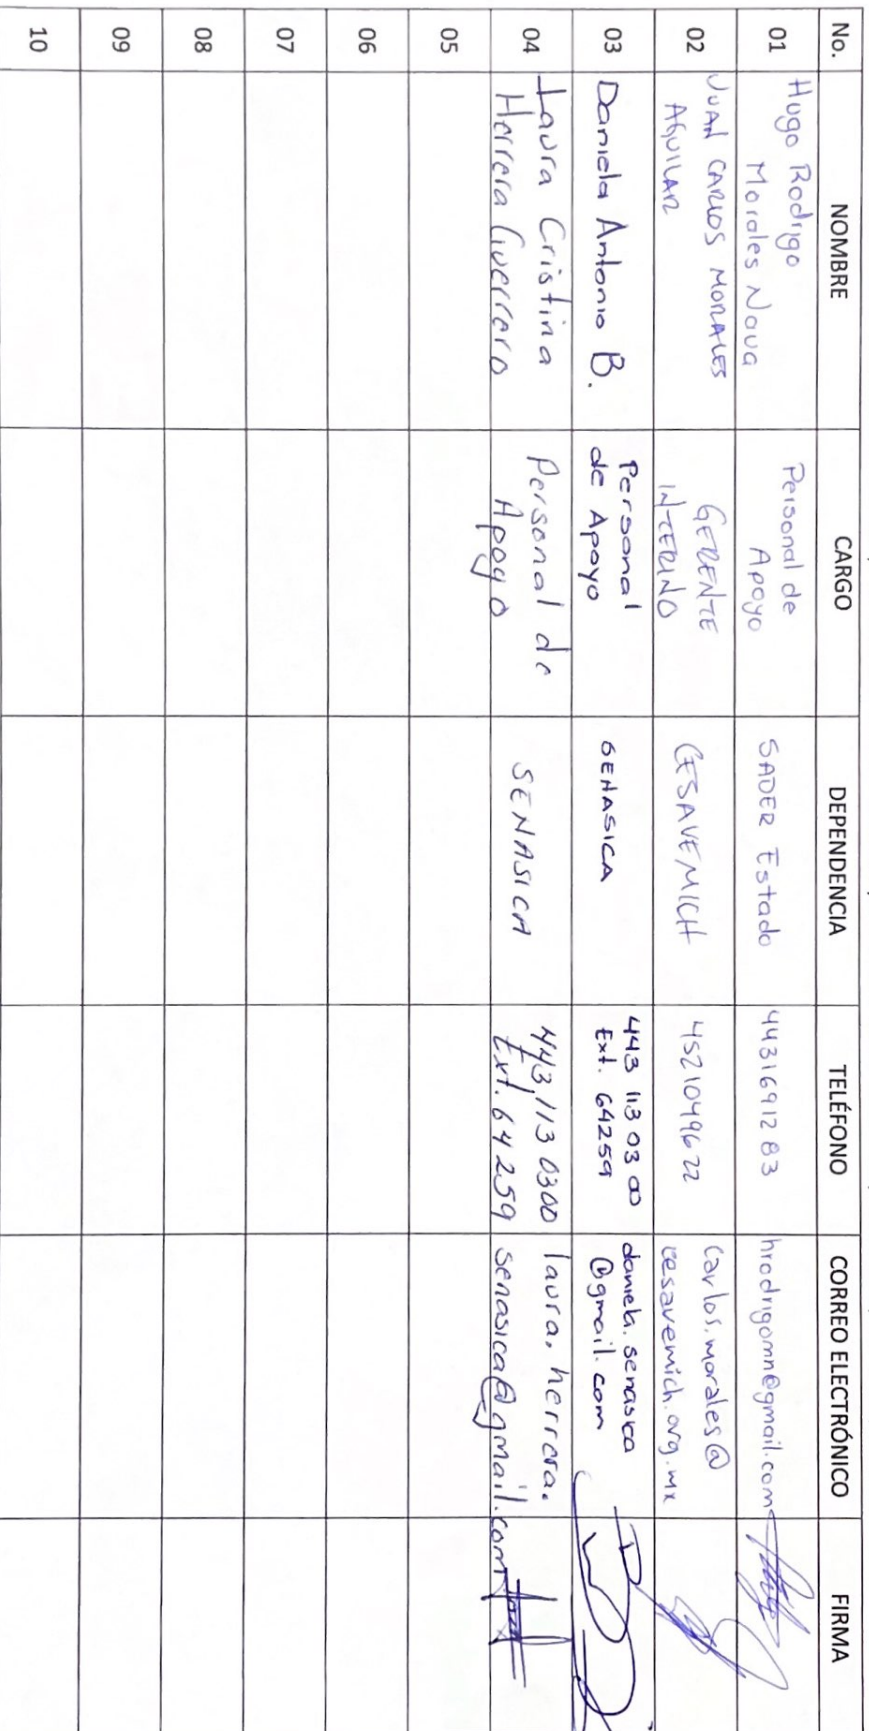 No. NOMBRE CARGO DEPENDENCIA TELÉFONO CORREO ELECTRÓNICO FIRMA
01
Hugo Rodrigo
Morales Nava
Personal de
Apoyo
SADER Estado
4431691283
hrodrigomn@gmail.com
02
JUAN CARLOS MORALES
AGUILAR
GERENTE
INTERINO
CESAVEMICH
4521049622
Carlos.morales@
cesavemich.org.mx
03
Daniela Antonio B.
Personal
de Apoyo
SENASICA
443 113 03 00
Ext. 64259
daniela.senasica
@gmail.com
04
Laura Cristina
Herrera Guerrero
Personal de
Apoyo
SENASICA
443 113 0300
Ext. 64259
laura.herrera.
senasica@gmail.com
05
06
07
08
09
10